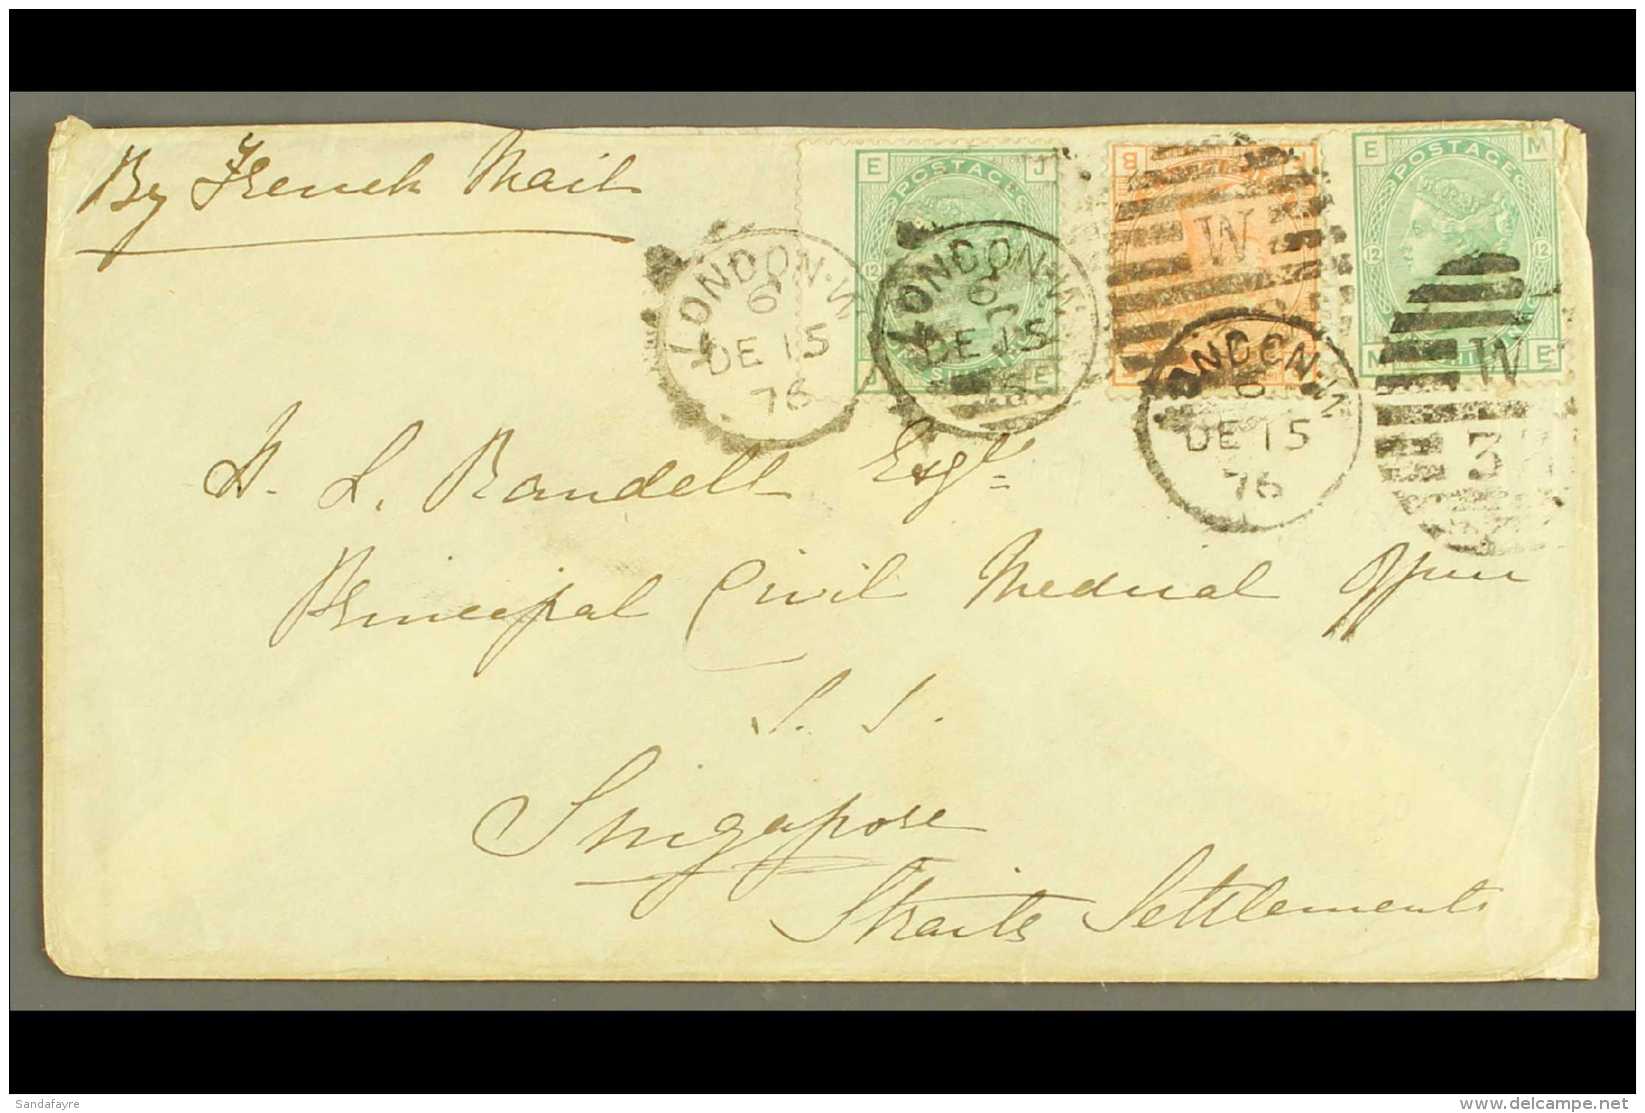 By French Mail
E POSTAGE J
12
J SIX PENCE E
B
E POSTAGE M
12 12
M E
LONDON·W
6
DE 15
76
LONDON·W
6
DE 15
76
W
LONDON·W
6
DE 15
76
W
3
H. L. Randell Esqr.
Principal Civil Medical Officer
S. S.
Singapore
Straits Settlements
Sandafayre
delcampe.net